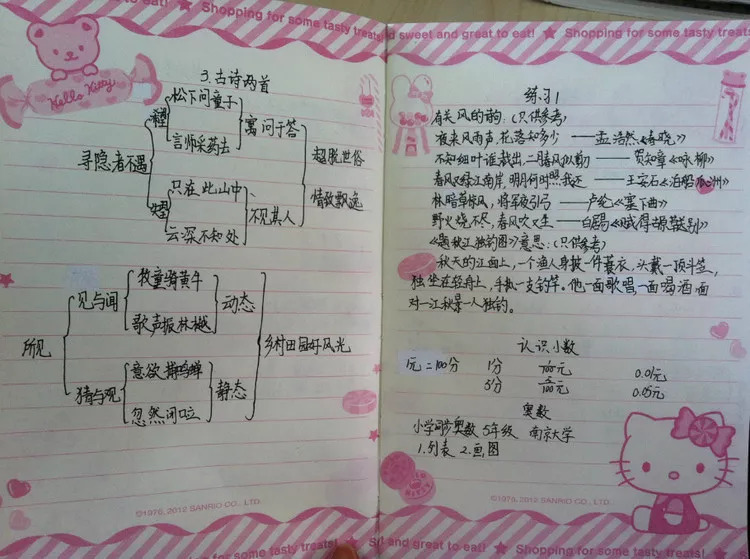 to eat! ★ Shopping for some tasty treats!
Hello Kitty
3.古诗两首
寻隐者不遇
松下问童子
言师采药去
寓问于答
只在此山中、
云深不知处
不见其人
超脱世俗
情致飘逸
所见
见与闻
牧童骑黄牛
歌声振林樾
动态
猜与观
意欲捕鸣蝉
忽然闭口立
静态
乡村田园好风光
©1976, 2012 SANRIO CO., LTD.
★ Shopping for some tasty treats!
d sweet and great to eat! ★ Shopping for some tasty treats!
练习1
有关风的诗句:(只供参考)
夜来风雨声,花落知多少 ——孟浩然《春晓》
不知细叶谁裁出,二月春风似剪刀 ——贺知章《咏柳》
春风又绿江南岸,明月何时照我还 ——王安石《泊船瓜洲》
林暗草惊风,将军夜引弓 ——卢纶《塞下曲》
野火烧不尽,春风吹又生 ——白居易《赋得古原草送别》
《题秋江独钓图》意思:(只供参考)
秋天的江面上,一个渔人身披一件蓑衣,头戴一顶斗笠,
独坐在轻舟上,手执一支钓竿。他一面歌唱,一面喝酒,面
对一江秋景一人独钓。
认识小数
1元=100分 1分 1/100元 0.01元
5分 5/100元 0.05元
奥数
小学同步奥数 5年级 南京大学
1.列表 2.画图
©1976, 2012 SANRIO CO., LTD.
and great to eat! ★ Shopping for some tasty treats!